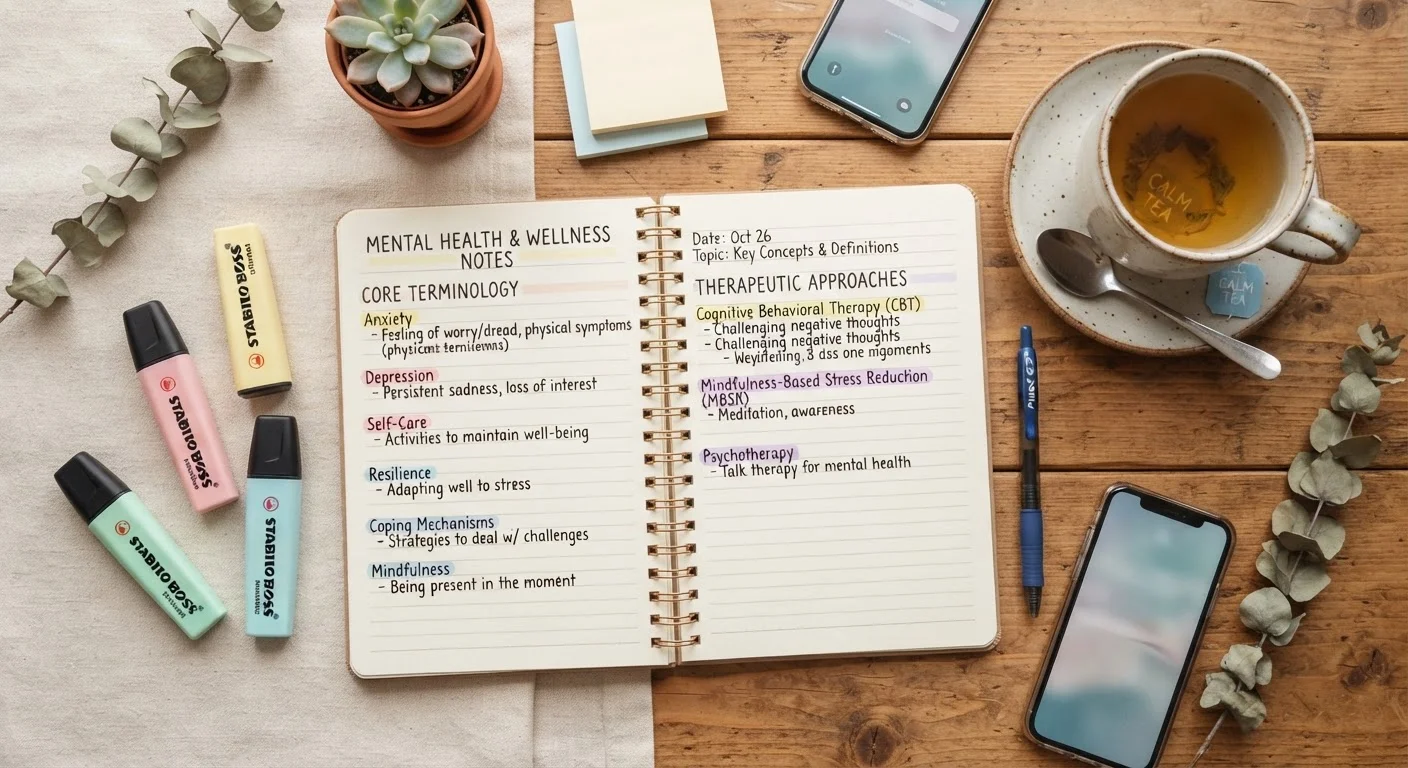 MENTAL HEALTH & WELLNESS
NOTES
CORE TERMINOLOGY
Anxiety
- Feeling of worry/dread, physical symptoms
Depression
- Persistent sadness, loss of interest
Self-Care
- Activities to maintain well-being
Resilience
- Adapting well to stress
Coping Mechanisms
- Strategies to deal w/ challenges
Mindfulness
- Being present in the moment
Date: Oct 26
Topic: Key Concepts & Definitions
THERAPEUTIC APPROACHES
Cognitive Behavioral Therapy (CBT)
- Challenging negative thoughts
- Challenging negative thoughts
3 dss one
Mindfulness-Based Stress Reduction
- Meditation, awareness
Psychotherapy
- Talk therapy for mental health
STABILO BOSS
STABILO BOSS
STABILO BOSS
STABILO BOSS
CALM
TEA
CALM
TEA